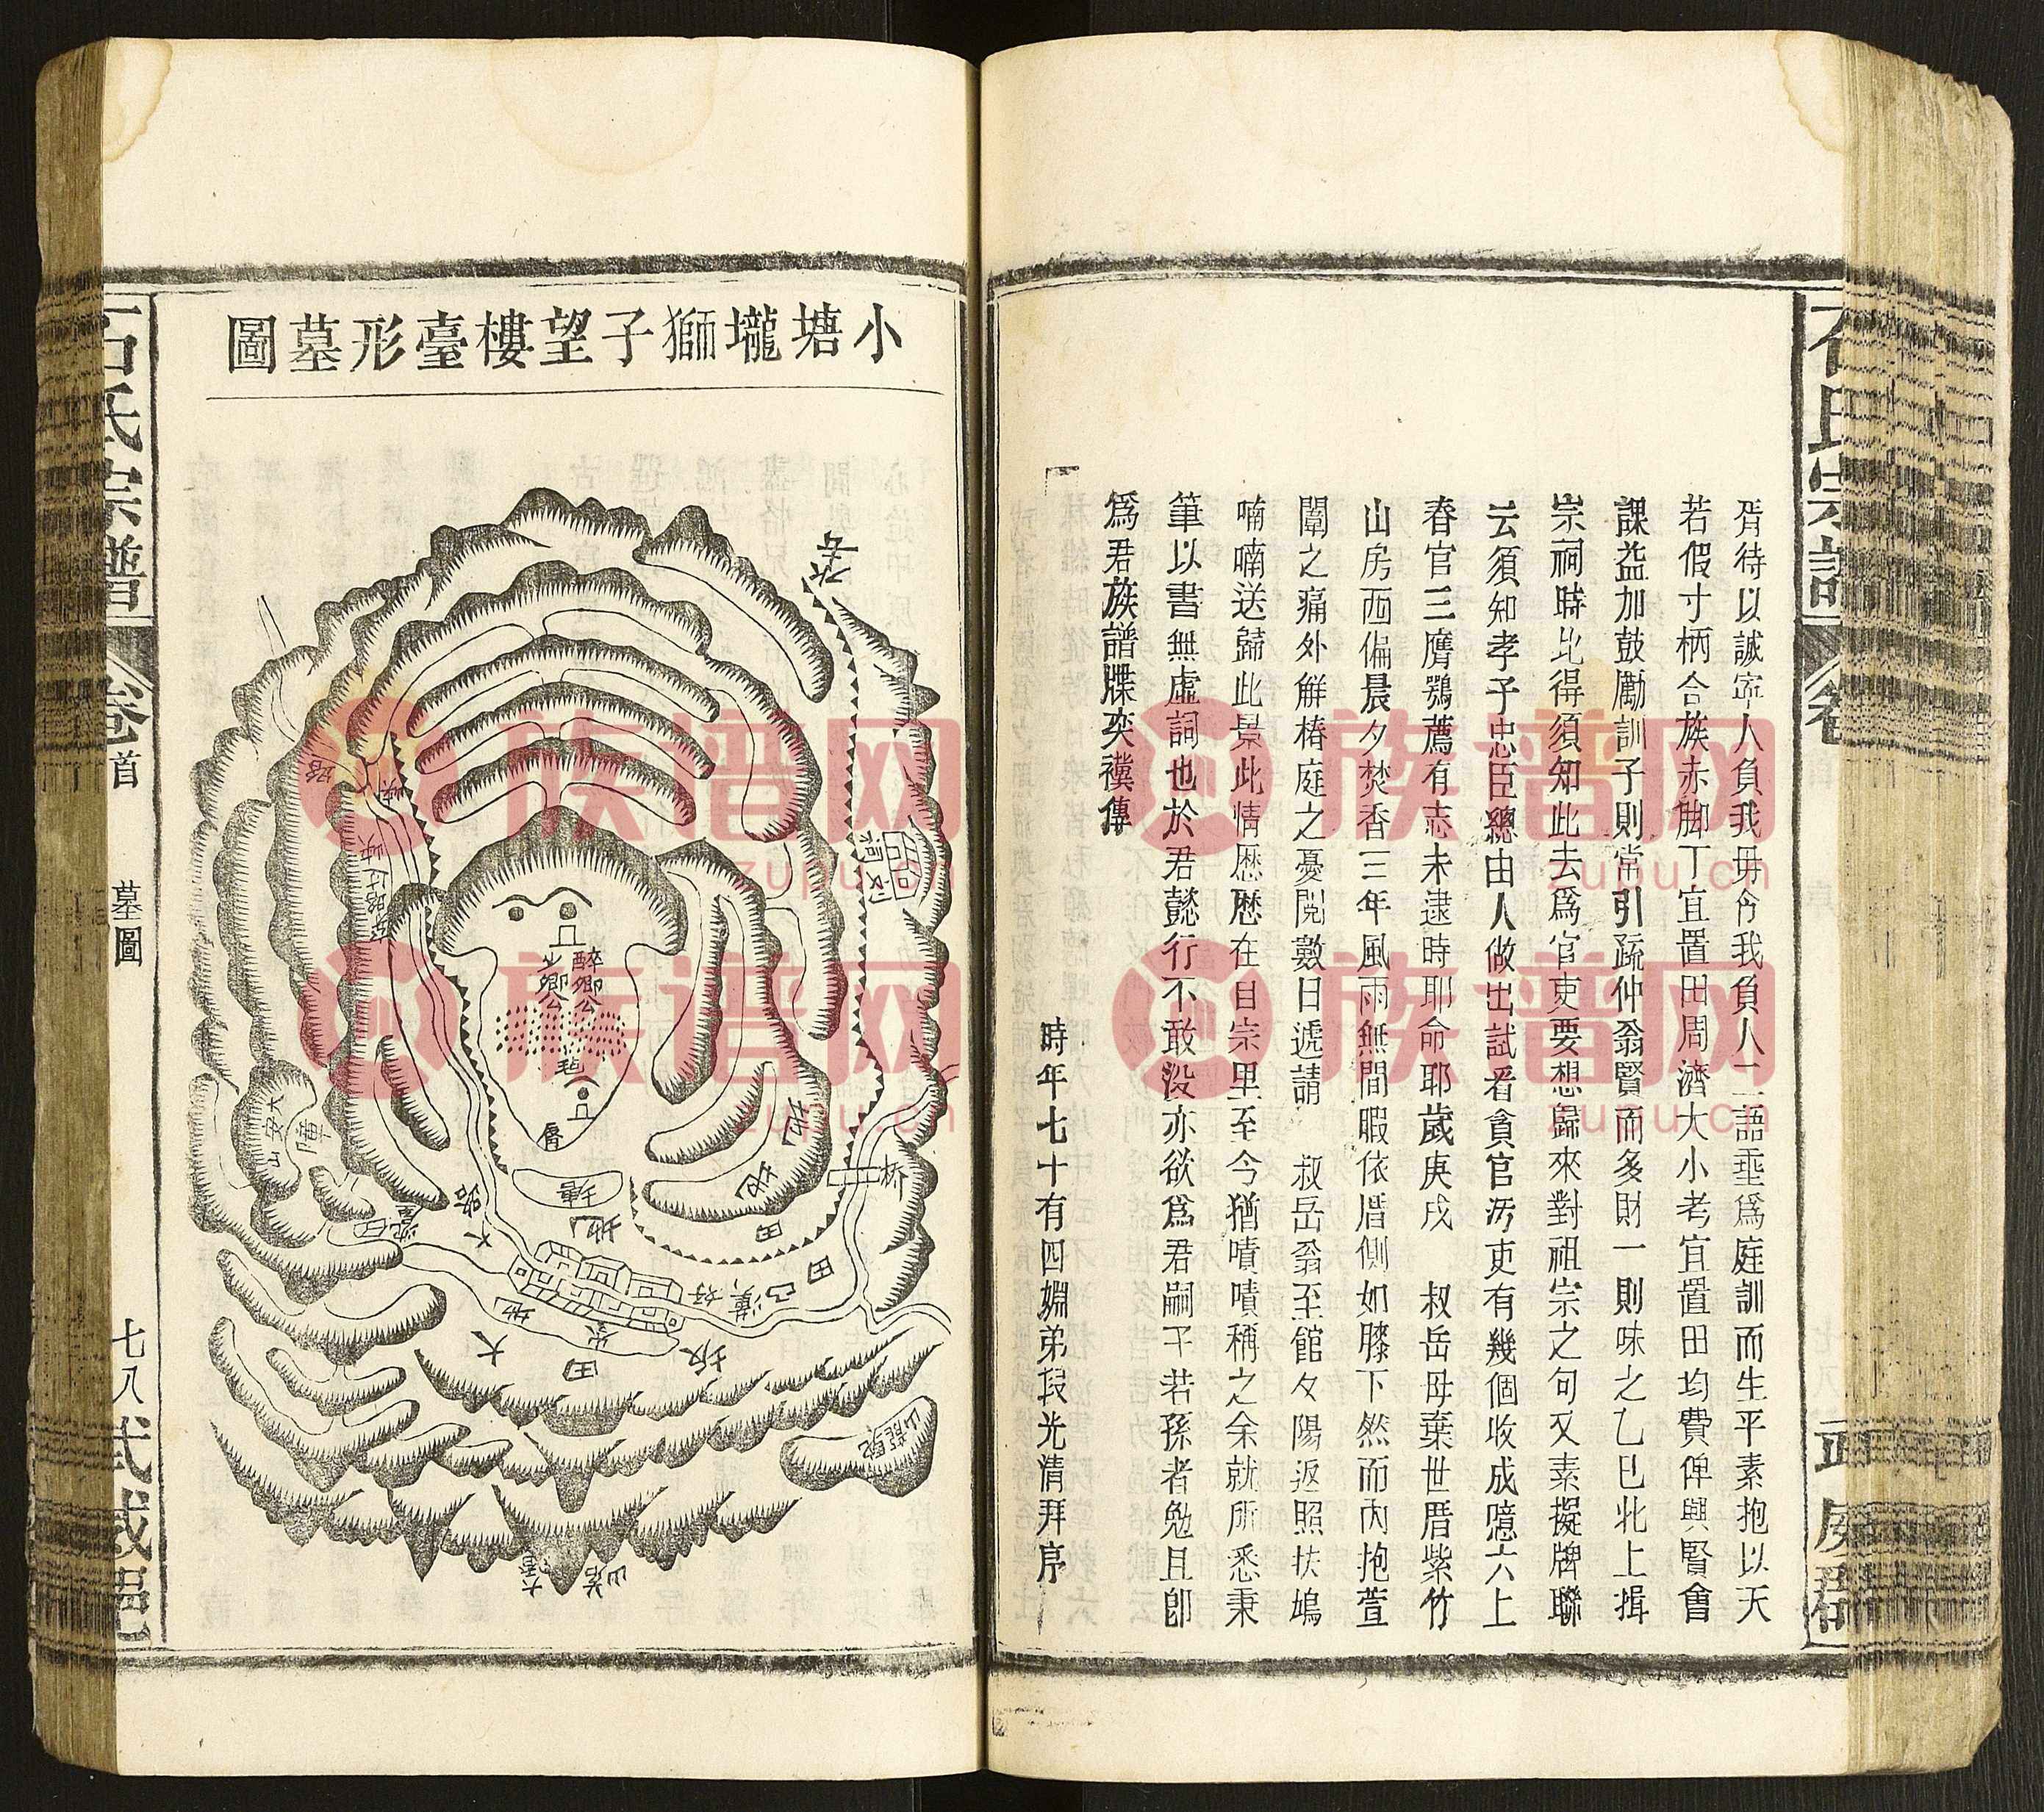 石氏宗譜
卷
武威郡
胥待以誠寧人負我毋令我負人二語垂爲庭訓而生平素抱以天
若假寸柄合族赤脚丁宜置田周濟大小考宜置田均費俾興賢會
課益加鼓勵訓子則常引疏仲翁賢而多財一則味之乙巳北上揖
宗祠時比得須知此去爲官吏要想歸來對祖宗之句又素擬牌聯
云須知孝子忠臣總由人做出試看貪官汚吏有幾個收成噫六上
春官三膺鶚薦有志未逮時耶命耶歲庚戌 叔岳母棄世厝紫竹
山房西偏晨夕焚香三年風雨無間暇依厝側如膝下然而內抱萱
闈之痛外鮮椿庭之憂閱數日遞請 叔岳翁至館夕陽返照扶鳩
喃喃送歸此景此情歷歷在目宗里至今猶嘖嘖稱之余就所悉秉
筆以書無虛詞也於君懿行不敢沒亦欲爲君嗣子若孫者勉且卽
爲君族譜牒奕禩傳
時年七十有四姻弟段光清拜序
小塘壠獅子望樓臺形墓圖
醉卿公
步卿公
塘
地
大路
桥
田
田
田
大
地
坂
刘祠
大安山
駝龍山
石氏宗譜
卷首
墓圖
七八
武威郡